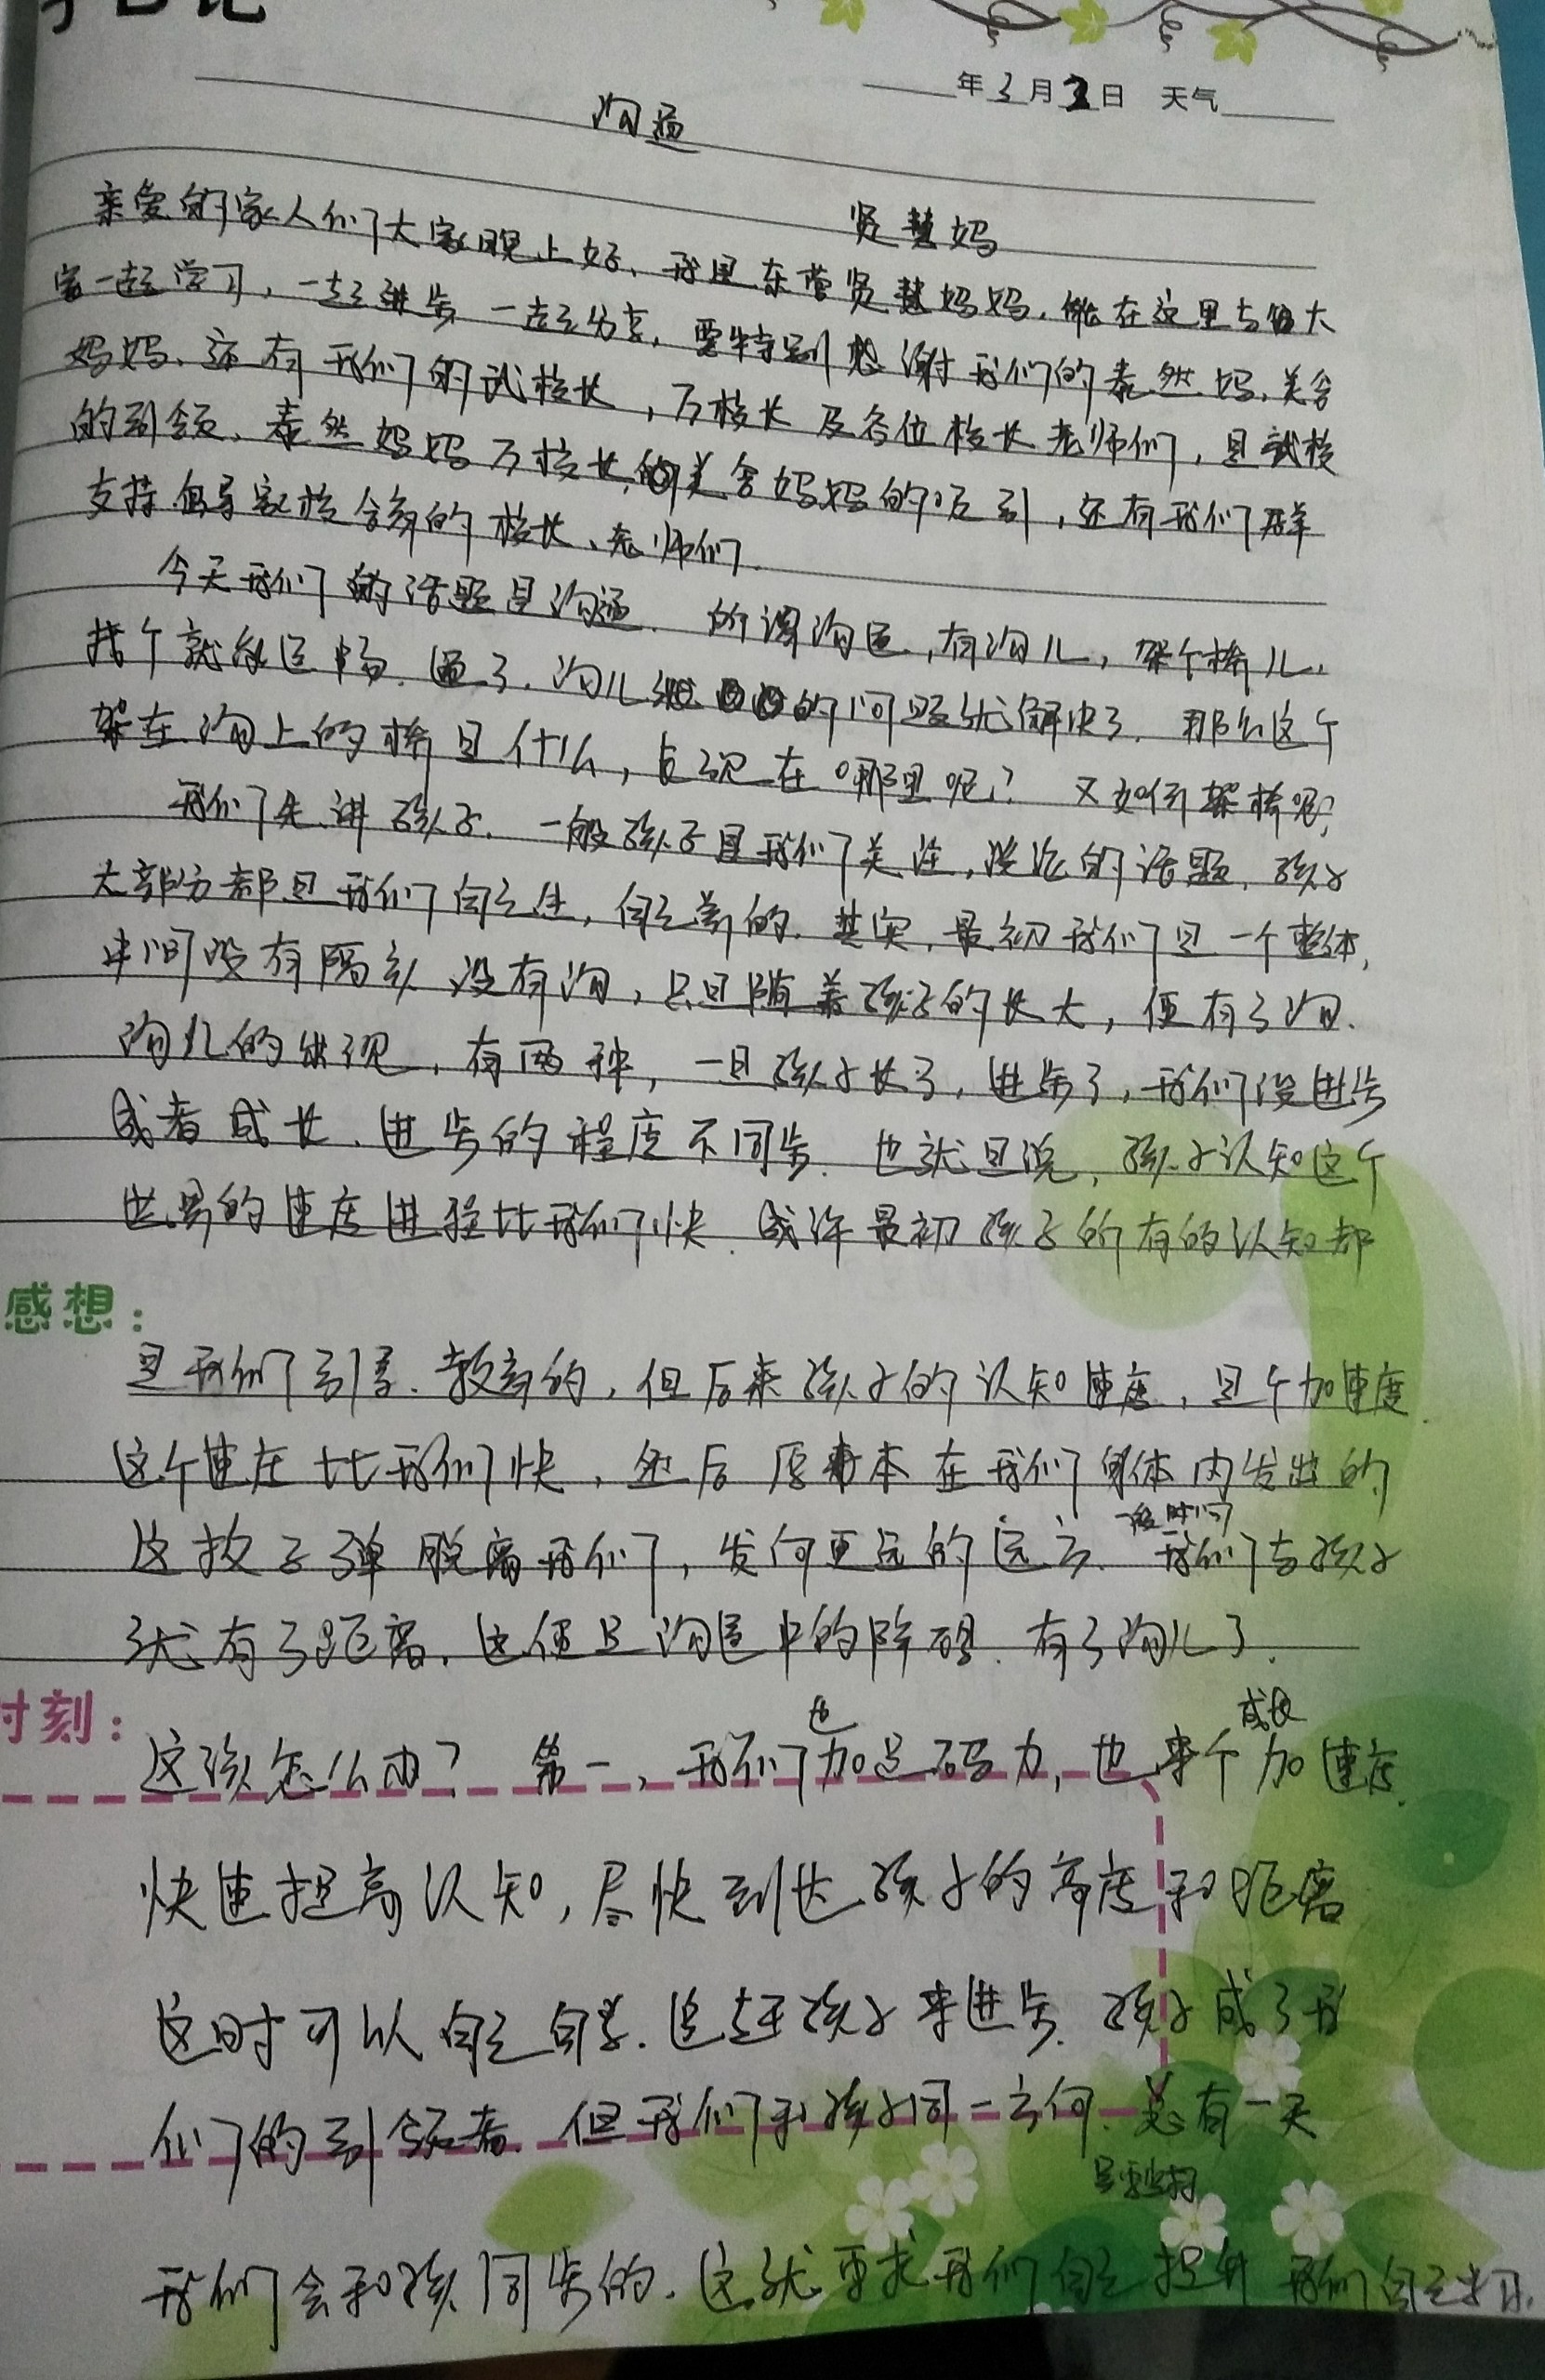 年3月2日 天气
沟通
贤慧妈
亲爱的家人们大家晚上好、我是东营贤慧妈妈.能在这里与大
家一起学习,一起进步 一起分享,要特别感谢我们的泰然妈.美含
妈妈、还有我们的武校长,万校长及各位校长老师们,是武校
的引领、泰然妈妈 万校长、美含妈妈的吸引,还有我们群
支持倡导家校合育的校长、老师们.
今天我们的话题是沟通. 所谓沟通,有沟儿,架个桥儿.
搭个就能通畅.通了.沟儿的问题就解决了. 那么这个
架在沟上的桥是什么,出现在哪里呢? 又如何架桥呢?
我们先讲孩子. 一般孩子是我们关注,谈论的话题. 孩子
大部分都是我们自己生,自己养的.其实,最初我们是一个整体,
中间没有隔阂 没有沟,只是随着孩子的长大,便有了沟.
沟儿的出现,有两种,一是孩子长了,进步了,我们没进步
或者成长、进步的程度不同步. 也就是说,孩子认知这个
世界的速度进程比我们快. 或许最初孩子所有的认知都
感想:
是我们引导、教育的,但后来孩子的认知速度,是个加速度.
这个速度比我们快,然后原本在我们身体内发出的
一段时间
这枚子弹脱离我们,发向更远的远方. 我们与孩子
就有了距离.这便是沟通中的障碍. 有了沟儿了.
时刻:
也 成长
这该怎么办? 第一,我们加足码力,也来个加速度.
快速提高认知,尽快到达孩子的高度和距离
这时可以自己自学.追赶孩子来进步. 孩子成了我
们的引领者. 但我们和孩子同一方向.总有一天
我们会和孩同步的.这就要求我们自己提升 我们自己学习.